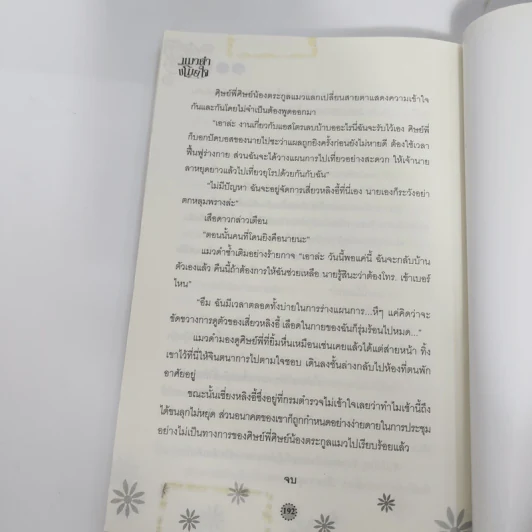 แมวดำ
ขโมยใจ
ศิษย์พี่ศิษย์น้องตระกูลแมวแลกเปลี่ยนสายตาแสดงความเข้าใจ
กันและกันโดยไม่จำเป็นต้องพูดออกมา
"เอาล่ะ งานเกี่ยวกับแอสโตรเตบบ้าบออะไรนี่ฉันจะรับไว้เอง ศิษย์พี่
ก็บอกบัดบอสของนายไปซะว่าแผลถูกยิงครั้งก่อนยังไม่หายดี ต้องใช้เวลา
ฟื้นฟูร่างกาย ส่วนฉันจะได้วางแผนการไปเที่ยวอย่างสะดวก ให้เจ้านาย
ลาหยุดยาวแล้วไปเที่ยวยุโรปด้วยกันกับฉัน"
"ไม่มีปัญหา ฉันจะอยู่จัดการเสี่ยวหลิงอี้ที่นี่เอง นายเองก็ระวังอย่า
ตกหลุมพรางล่ะ"
เสือดาวกล่าวเตือน
"ตอนนั้นคนที่โดนยิงคือนายนะ"
แมวดำซ้ำเติมอย่างร้ายกาจ "เอาล่ะ วันนี้พอแค่นี้ ฉันจะกลับบ้าน
ตัวเองแล้ว คืนนี้ถ้าต้องการให้ฉันช่วยเหลือ นายรู้สินะว่าต้องโทร. เข้าเบอร์
ไหน"
"อืม ฉันมีเวลาตลอดทั้งบ่ายในการร่างแผนการ...หึๆ แค่คิดว่าจะ
ขัดขวางการดูตัวของเสี่ยวหลิงอี้ เลือดในกายของฉันก็รุ่มร้อนไปหมด..."
แมวดำมองดูศิษย์พี่ที่ยิ้มหื่นเหมือนเช่นเคยแล้วได้แต่ส่ายหน้า ทิ้ง
เขาไว้ที่นี่ให้จินตนาการไปตามใจชอบ เดินลงชั้นล่างกลับไปห้องที่ตนพัก
อาศัยอยู่
ขณะนั้นเซี่ยงหลิงอี้ซึ่งอยู่ที่กรมตำรวจไม่เข้าใจเลยว่าทำไมเช้านี้ถึง
ได้ขนลุกไม่หยุด ส่วนอนาคตของเขาก็ถูกกำหนดอย่างง่ายดายในการประชุม
อย่างไม่เป็นทางการของศิษย์พี่ศิษย์น้องตระกูลแมวไปเรียบร้อยแล้ว
จบ
192